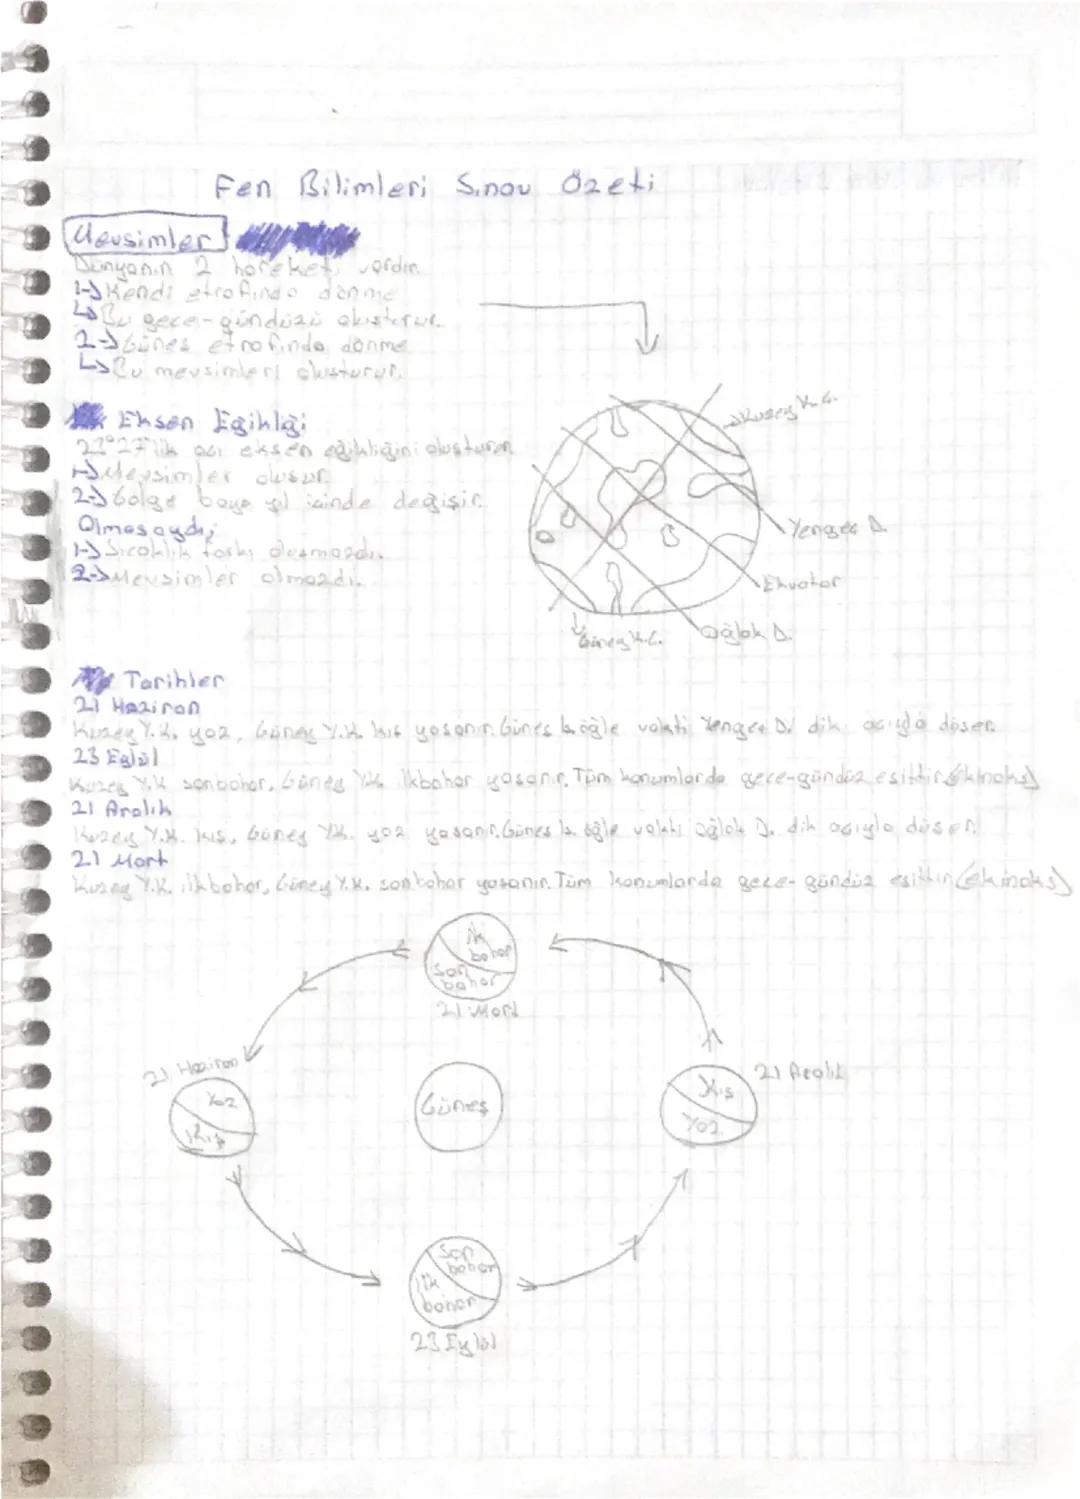 Fen Bilimleri Sınav Özeti
Mevsimler
Dünyanın 2 hareketi vardır.
1-> Kendi etrafında dönme
↳ Bu gece-gündüzü oluşturur.
2-> Güneş etrafında dönme
↳ Bu mevsimleri oluşturur.
Eksen Eğikliği
23°27'lik açı eksen eğikliğini oluşturur.
1-> Mevsimler oluşur.
2-> Gölge boyu yıl içinde değişir.
Olmasaydı;
1-> Sıcaklık farkı oluşmazdı.
2-> Mevsimler olmazdı.
Kuzey K.
Yengeç D.
Ekvator
Oğlak D.
Güney K.
Tarihler
21 Haziran
Kuzey Y.K. yaz, Güney Y.K. kış yaşanır. Güneş öğle vakti Yengeç D. dik açıyla düşer.
23 Eylül
Kuzey Y.K sonbahar, Güney Y.K. ilkbahar yaşanır. Tüm konumlarda gece-gündüz eşittir (ekinoks)
21 Aralık
Kuzey Y.K. kış, Güney Y.K. yaz yaşanır. Güneş öğle vakti Oğlak D. dik açıyla düşer.
21 Mart
Kuzey Y.K. ilkbahar, Güney Y.K. sonbahar yaşanır. Tüm konumlarda gece-gündüz eşittir (ekinoks)
ilk bahar
Son bahar
21 Mart
21 Haziran
Yaz
Kış
Güneş
21 Aralık
Kış
Yaz
Son bahar
ilk bahar
23 Eylül